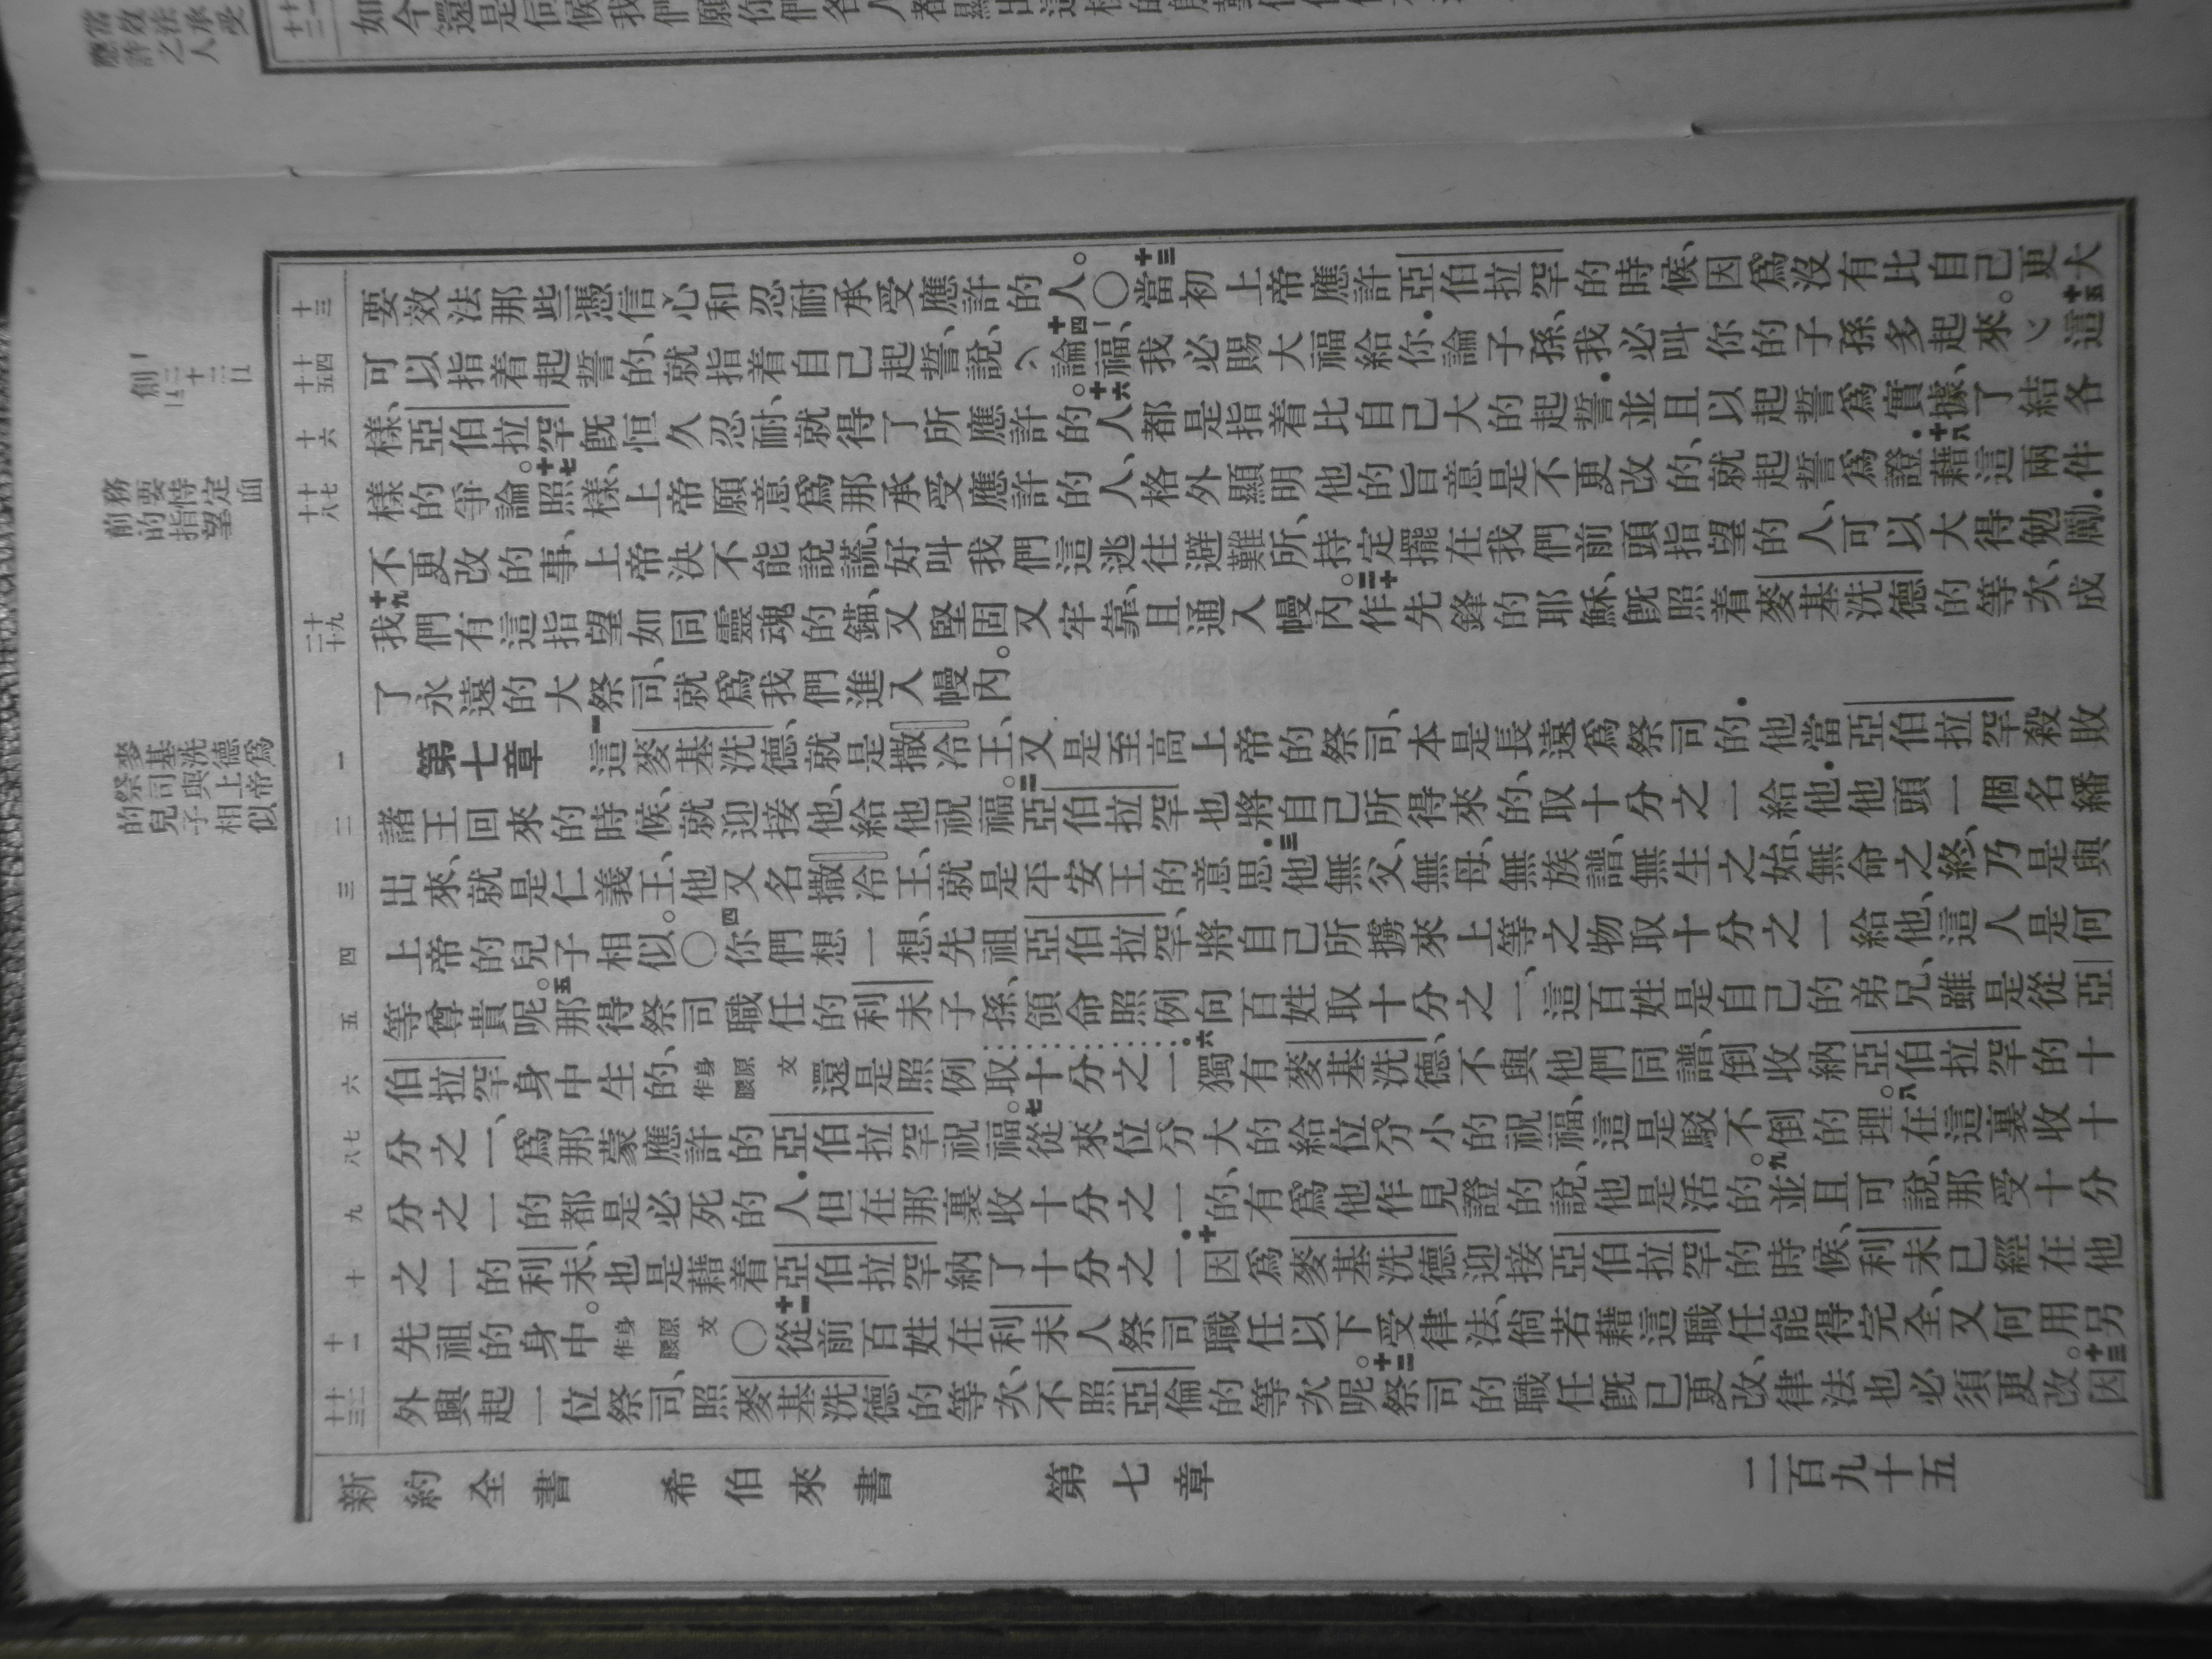 要效法那些憑信心和忍耐承受應許的人。〇十三當初上帝應許亞伯拉罕的時候、因爲沒有比自己更大
可以指着起誓的、就指着自己起誓、說、十四論福、我必賜大福給你.論子孫、我必叫你的子孫多起來。十五這
樣、亞伯拉罕旣恒久忍耐、就得了所應許的。十六人都是指着比自己大的起誓.並且以起誓爲實據、了結各
樣的爭論。十七照樣、上帝願意爲那承受應許的人、格外顯明他的旨意是不更改的、就起誓爲證.十八藉這兩件
不更改的事、上帝決不能說謊、好叫我們這逃往避難所、持定擺在我們前頭指望的人、可以大得勉勵.
十九我們有這指望如同靈魂的錨、又堅固又牢靠、且通入幔內。二十作先鋒的耶穌、旣照着麥基洗德的等次、成
了永遠的大祭司、就爲我們進入幔內。
第七章 一這麥基洗德、就是撒冷王、又是至高上帝的祭司、本是長遠爲祭司的.他當亞伯拉罕殺敗
諸王回來的時候、就迎接他、給他祝福。二亞伯拉罕也將自己所得來的、取十分之一給他.他頭一個名繙
出來、就是仁義王、他又名撒冷王、就是平安王的意思.三他無父、無母、無族譜、無生之始、無命之終、乃是與
上帝的兒子相似。〇四你們想一想、先祖亞伯拉罕、將自己所擄來上等之物取十分之一給他、這人是何
等尊貴呢。五那得祭司職任的利未子孫、領命照例向百姓取十分之一、這百姓是自己的弟兄、雖是從亞
伯拉罕身中生的、原文身作腰還是照例取十分之一.六獨有麥基洗德、不與他們同譜、倒收納亞伯拉罕的十
分之一、爲那蒙應許的亞伯拉罕祝福。七從來位分大的給位分小的祝福、這是駁不倒的理。八在這裏收十
分之一的都是必死的人.但在那裏收十分之一的、有爲他作見證的說、他是活的。九並且可說、那受十分
之一的利未、也是藉着亞伯拉罕納了十分之一.十因爲麥基洗德迎接亞伯拉罕的時候、利未已經在他
先祖的身中。原文身作腰〇十一從前百姓在利未人祭司職任以下受律法、倘若藉這職任能得完全、又何用另
外興起一位祭司、照麥基洗德的等次、不照亞倫的等次呢。十二祭司的職任旣已更改、律法也必須更改。十三因
新約全書 希伯來書 第七章 二百九十五
十三
十四 十五
十六
十七 十八
十九 二十
一
二
三
四
五
六
七 八
九
十
十一
十二 十三
務要恃定
前面的指望
麥基洗德爲
祭司與上帝
的兒子相似